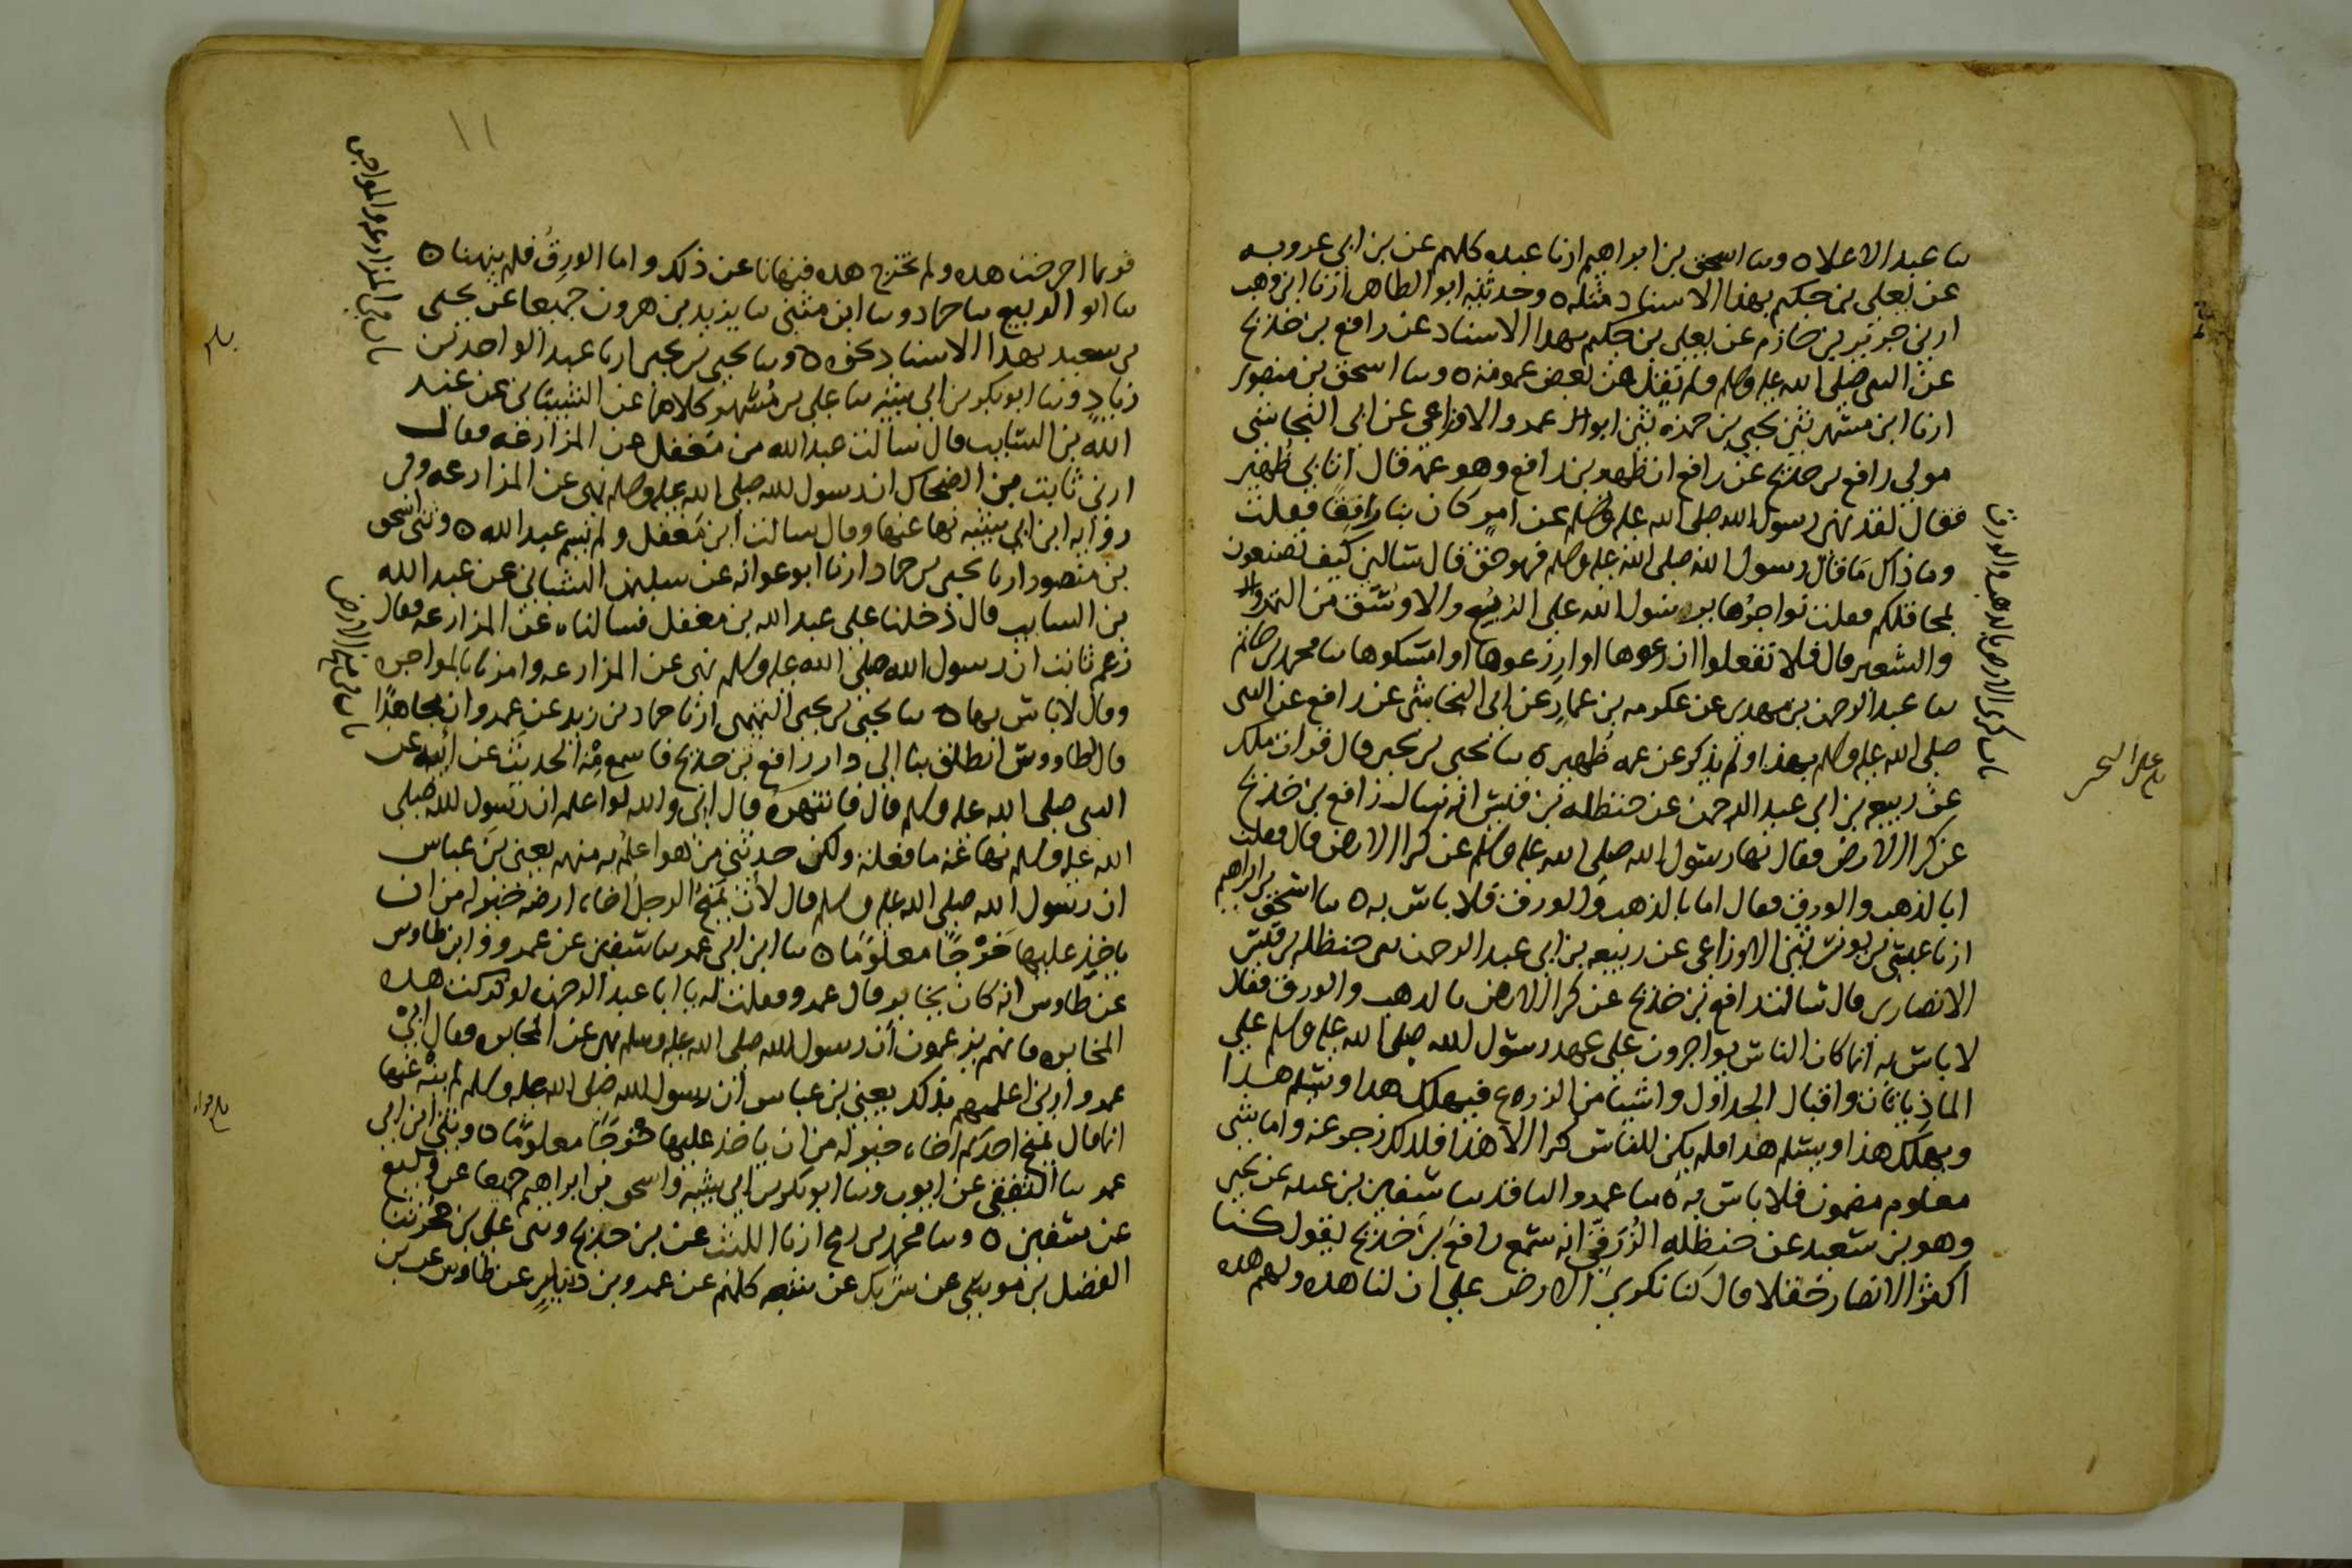 ىىا عبد الاعلا ٥ وىىا اسحق بن ابراهيم ارنا عبده كلهم عن بن ابي عروبه
عن يعلى بن حكيم بهذا الاسناد مثله ٥ وحدثنيه ابو الطاهر ارنا ابن وهب
ارني جرير بن حازم عن يعلى بن حكيم بهدا الاسناد عن رافع بن خديج
عن النبي صلى الله عليه وسلم ولم يقل عن بعض عمومته ٥ وىىا اسحق بن منصور
ارنا ابن مسهر ثني يحيى بن حمزة ثني ابو عمرو الاوزاعي عن ابي النجاشي
مولى رافع بن خديج عن رافع ان ظهير بن رافع وهو عمه قال اتاني ظهير
فقال لقد نهى رسول الله صلى الله عليه وسلم عن امر كان بنا رافقا فقلت
وما ذاك ما قال رسول الله صلى الله عليه وسلم فهو حق قال سالني كيف تصنعون
بمحاقلكم فقلت نواجرها يرسول الله على الربيع والاوسق من التمر او
والشعير قال فلا تفعلوا ازرعوها او ازرعوها او امسكوها ىىا محمد بن حاتم
ىىا عبد الرحمن بن مهدي عن عكرمه بن عمار عن ابي النجاشي عن رافع عن النبي
صلى الله عليه وسلم بهذا ولم يذكر عن عمه ظهير ٥ ىىا يحيى بن يحيى قال قرات ملك
عن ربيعه بن ابي عبد الرحمن عن حنظله بن قيس انه سال رافع بن خديج
عن كرا الارض فقال نها رسول الله صلى الله عليه وسلم عن كرا الارض قال فقلت
ابالذهب والورق فقال اما بالذهب والورق فلا باس به ٥ ىىا اسحق بن ابراهيم
ارنا عيسى بن يونس ثني الاوزاعي عن ربيعه بن ابي عبد الرحمن ثني حنظله بن قيس
الانصاري قال سالت رافع بن خديج عن كرا الارض بالدهب والورق فقال
لا باس به انما كان الناس يواجرون على عهد رسول الله صلى الله عليه وسلم على
الماذيانات واقبال الجداول واشيا من الزرع فيهلك هدا ويسلم هدا
ويهلك هذا ويسلم هدا فلم يكن للناس كرا الا هذا فلدلك زجر عنه واما شي
معلوم مضمون فلا باس به ٥ ىىا عمرو الناقد ىىا سفين بن عيينه عن يحيى
وهو بن سعيد عن حنظله الزرقي انه سمع رافع بن خديج يقول كنا
اكثر الانصار حقلا قال كنا نكري الارض على ان لنا هده ولهم هده
باب كرى الارض بالدهب والورق
١١
فربما اخرجت هده ولم تخرج هده فنهانا عن ذلك واما الورق فلم ينهنا ٥
ىىا ابو الربيع ىىا حماد وىىا ابن مثنى ىىا يزيد بن هرون جميعا عن يحيى
بن سعيد بهدا الاسناد نحوه ٥ وىىا يحيى بن يحيى ارنا عبد الواحد بن
زياد وىىا ابو بكر بن ابي شيبه ىىا علي بن مسهر كلاهما عن الشيباني عن عبد
الله بن السايب قال سالت عبد الله بن مغفل عن المزارعه فقال
ارني ثابت بن الضحاك ان رسول الله صلى الله عليه وسلم نهى عن المزارعه وفي
روايه ابن ابي شيبه نها عنها وقال سالت ابن مغفل ولم يسم عبد الله ٥ وثني اسحق
بن منصور ارنا يحيى بن حماد ارنا ابو عوانه عن سليمن الشيباني عن عبد الله
بن السايب قال دخلنا على عبد الله بن مغفل فسالناه عن المزارعه فقال
زعم ثابت ان رسول الله صلى الله عليه وسلم نهى عن المزارعه وامرنا بالمواجره
وقال لا باس بها ٥ ىىا يحيى بن يحيى التميمي ارنا حماد بن زيد عن عمرو ان مجاهدا
قال لطاووس انطلق بنا الى دار رافع بن خديج فاسمع منه الحديث عن ابيه عن
النبي صلى الله عليه وسلم قال فانتهره قال اني والله لو اعلم ان رسول الله صلى
الله عليه وسلم نها عنه ما فعلته ولكن حدثني من هو اعلم به منهم يعني بن عباس
ان رسول الله صلى الله عليه وسلم قال لأن يمنح الرجل اخاه ارضه خير له من ان
ياخذ عليها خرجا معلوما ٥ ىىا ابن ابي عمر ىىا سفين عن عمرو وابن طاوس
عن طاوس انه كان يخابر قال عمرو فقلت له يا ابا عبد الرحمن لو تركت هده
المخابره فانهم يزعمون ان رسول الله صلى الله عليه وسلم نهى عن المخابره فقال اي
عمرو ارني اعلمهم بذلك يعني بن عباس ان رسول الله صلى الله عليه وسلم لم ينه عنها
انما قال يمنح احدكم اخاه خير له من ان ياخذ عليها خرجا معلوما ٥ وثني ابن ابي
عمر ىىا الثقفي عن ايوب وىىا ابو بكر بن ابي شيبه واسحق بن ابراهيم جميعا عن وكيع
عن سفين ٥ وىىا محمد بن رمح ارنا الليث عن بن جريج وثني علي بن حجر ىىا
الفضل بن موسى عن شريك عن شعبه كلهم عن عمرو بن دينار عن طاوس عن بن
باب في المزارعه والمواجره
باب في منح الارض